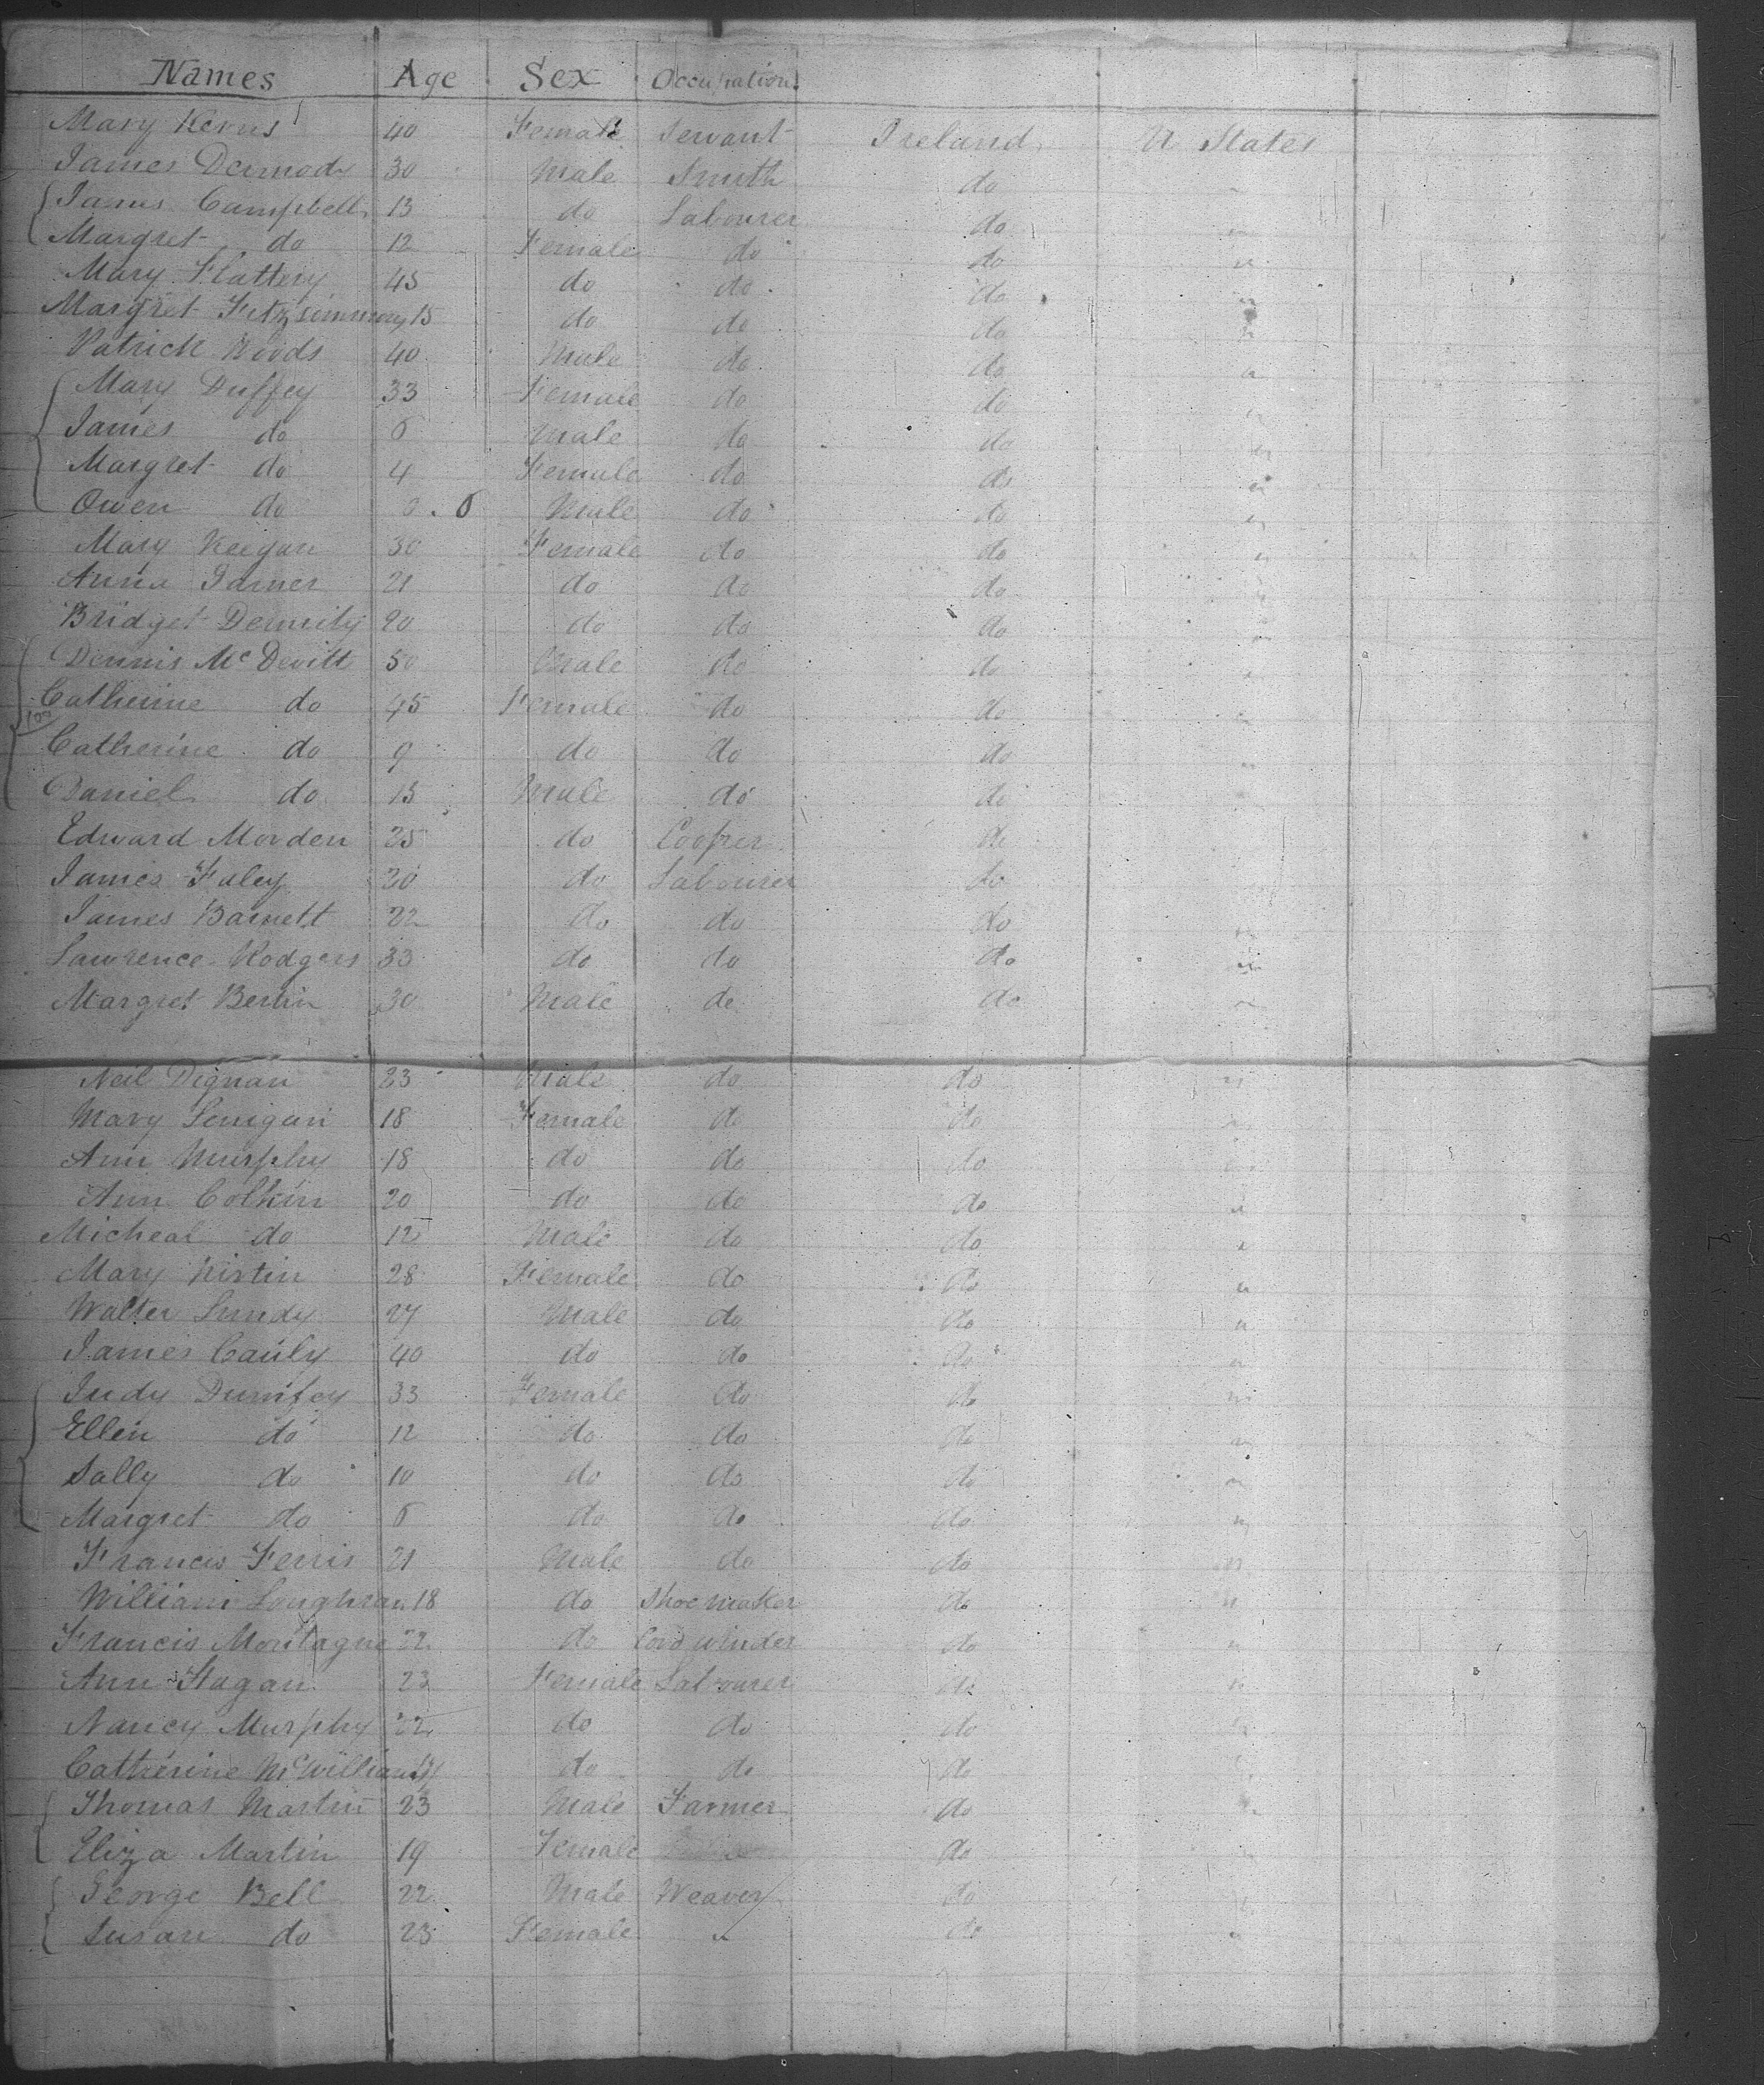 Names Age Sex Occupation
Mary Kerns 40 Female Servant Ireland U States
James Dermody 30 Male Smith do "
James Campbell 13 do Labourer do "
Margret do 12 Female do do "
Mary Flattery 45 do do do "
Margret Fitzsimmons 15 do do do "
Patrick Woods 40 Male do do "
Mary Duffey 33 Female do do "
James do 6 Male do do "
Margret do 4 Female do do "
Owen do 0.6 Male do do "
Mary Keegan 30 Female do do "
Anna 21 do do do "
Bridget 20 do do do "
Dennis McDevitt 50 Male do do "
Catherine do 45 Female do do "
Catherine do 9 do do do "
Daniel do 13 Male do do "
Edward Morden 25 do Cooper do
James Faley 20 do Labourer do "
James Barnett 22 do do do "
Lawrence Rodgers 33 do do do "
Margret 30 Male do do "
Neil Dignan 23 Male do do "
Mary 18 Female do do "
Ann Murphy 18 do do do "
Ann 20 do do do "
Micheal do 12 Male do do "
Mary 28 Female do do "
Walter Lundy 27 Male do do "
James Cauly 40 do do do "
Judy Dumfey 33 Female do do "
Ellen do 12 do do do "
Sally do 10 do do do "
Margret do 6 do do do "
Francis Ferris 21 Male do do "
William Loughran 18 do Shoemaker do "
Francis Montague 22 do Cordwinder do "
Ann Hagan 23 Female Labourer do "
Nancy Murphy 22 do do do "
Catherine McWilliams do do do "
Thomas Martin 23 Male Farmer do "
Eliza Martin 19 Female do "
George Bell 22 Male Weaver do "
Susan do 23 Female " do "